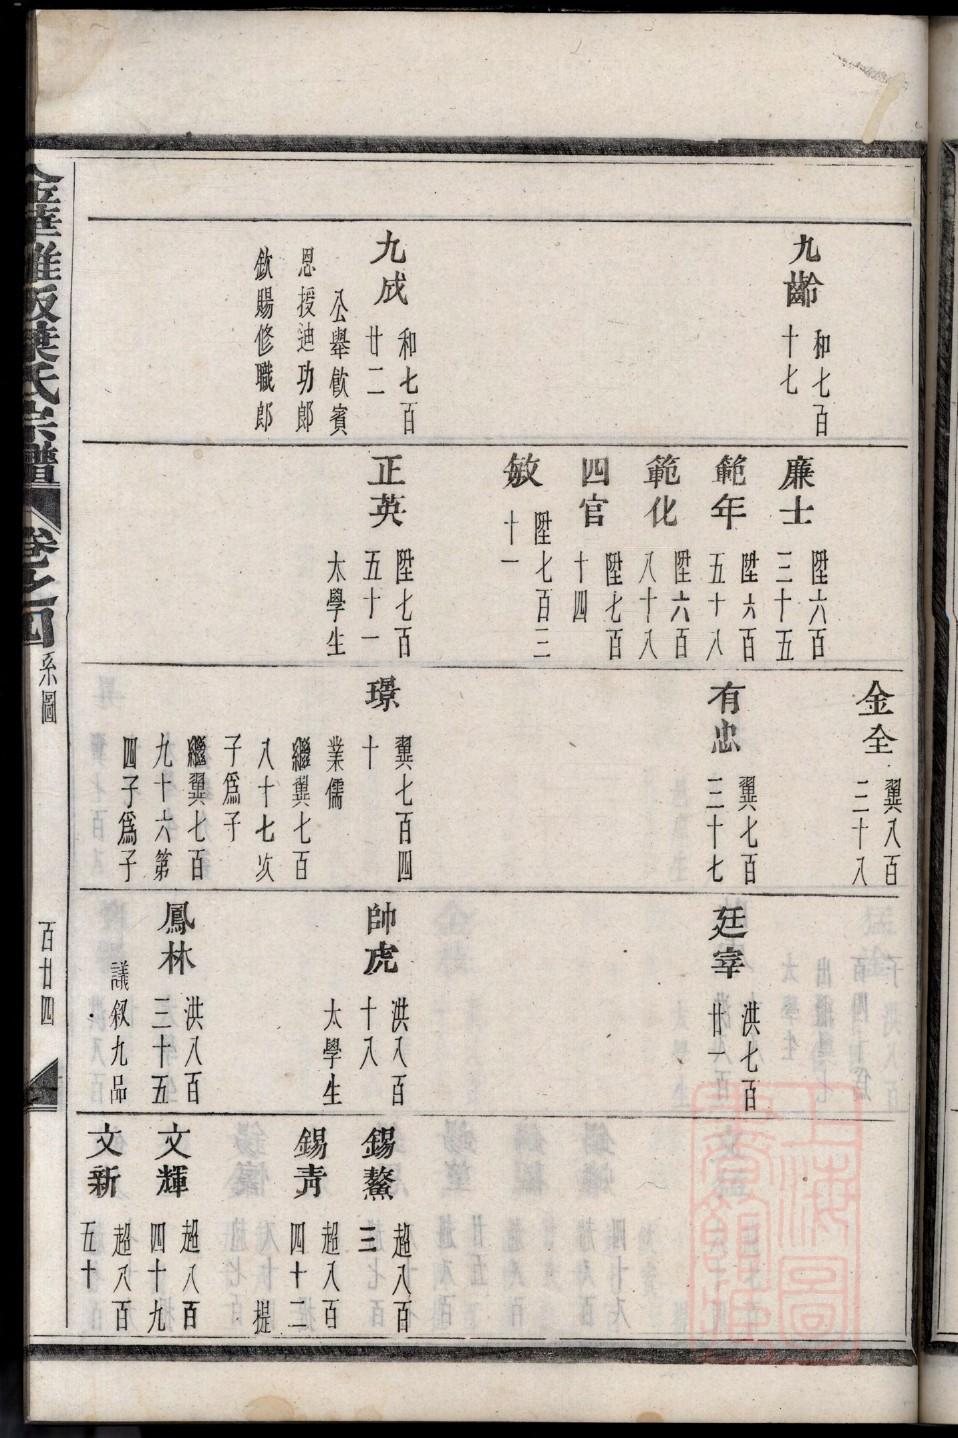 九齡
和七百
十七
九成
和七百
廿二
公舉飲賓
恩授迪功郎
欽賜修職郎
廉士
陞六百
三十五
範年
陞六百
五十八
範化
陞六百
八十八
四官
陞七百
十四
敏
陞七百三
十一
正英
陞七百
五十一
太學生
金全
翼八百
三十八
有忠
翼七百
三十七
璟
翼七百四
十
業儒
繼翼七百
八十七次
子爲子
繼翼七百
九十六第
四子爲子
廷宰
洪七百
廿一
帥虎
洪八百
十八
太學生
鳳林
洪八百
三十五
議叙九品
錫鰲
超八百
三
錫青
超八百
四十二
提
文輝
超八百
四十九
文新
超八百
五十
葉氏宗譜
卷之四
系圖
百廿四
上海圖
書館藏